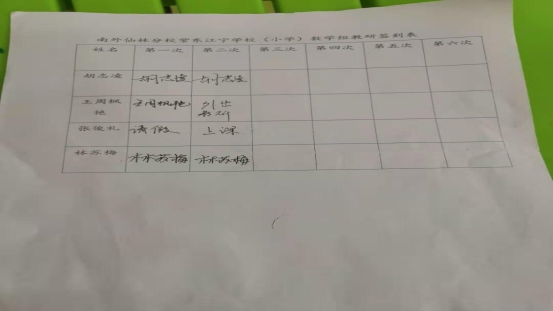 南外仙林分校紫东江宁学校（小学）数学组教研签到表
姓名 第一次 第二次 第三次 第四次 第五次 第六次
胡志凌 胡志凌 胡志凌
王周枫 王周枫艳 外出
艳
张俊礼 请假 上课
林苏梅 林苏梅 林苏梅